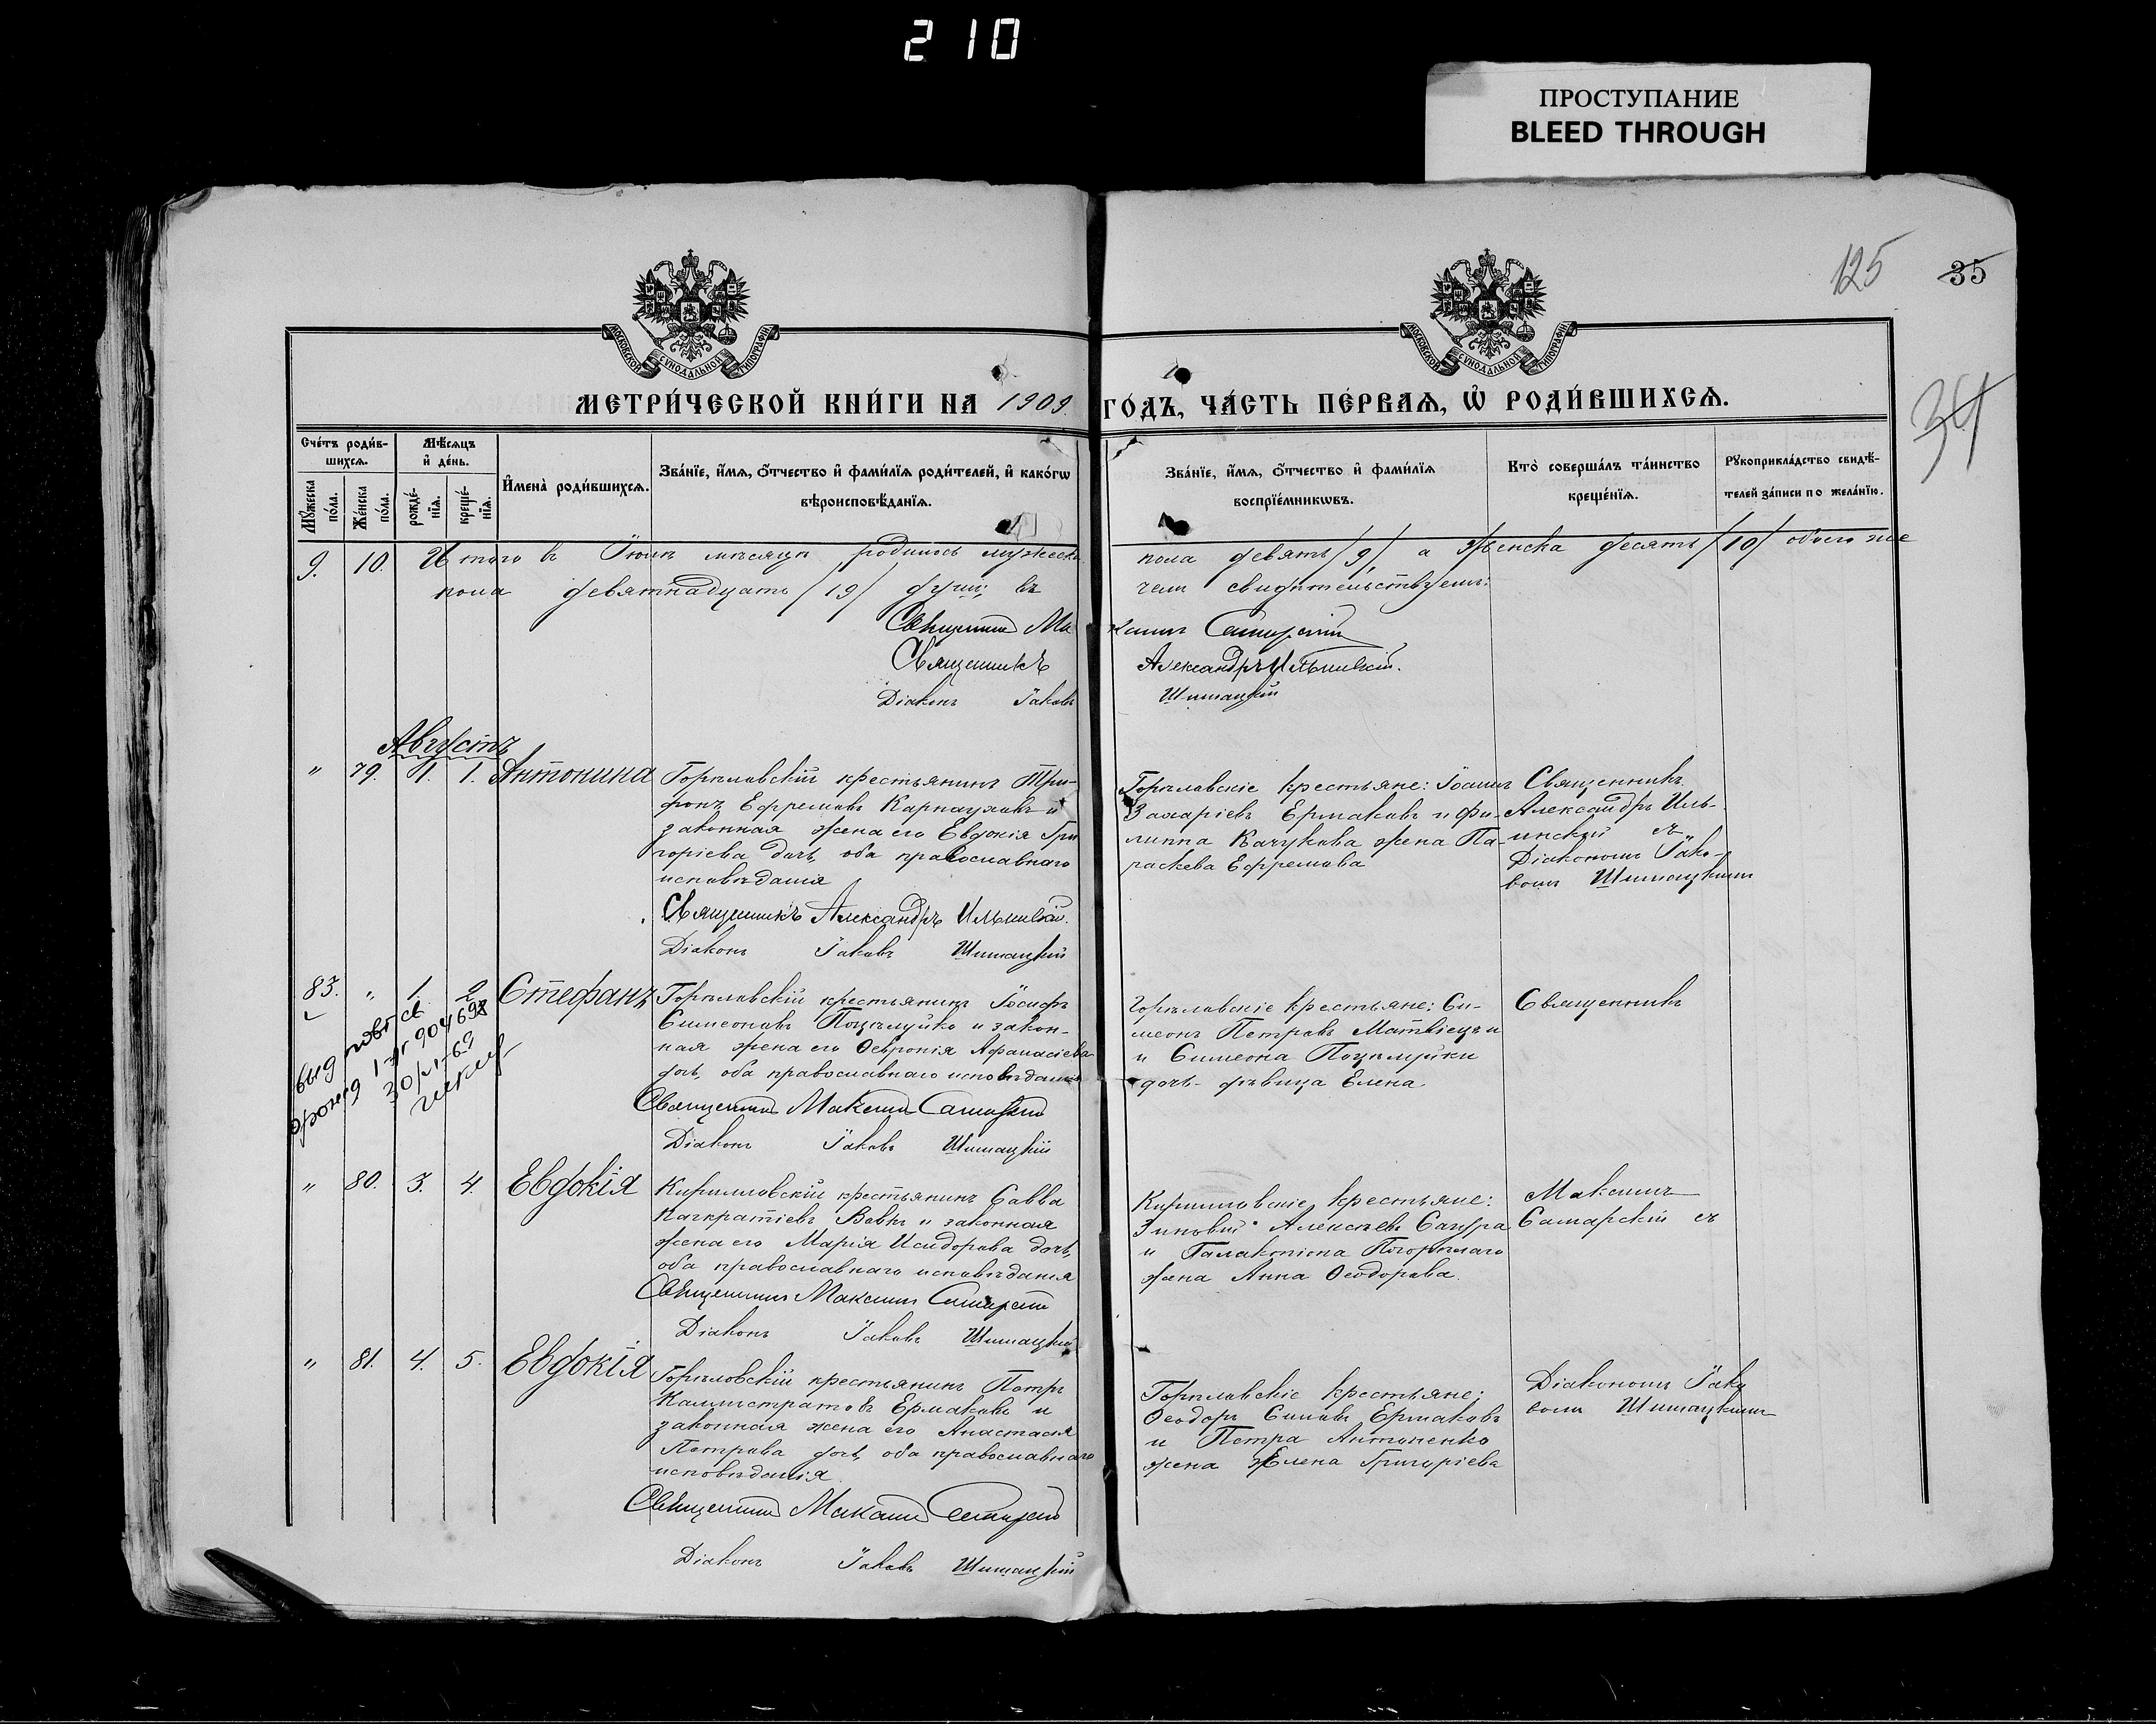 210
ПРОСТУПАНИЕ
BLEED THROUGH
125 35
34
МОСКОВСКОЙ СУНОДАЛЬНОЙ ТИПОГРАФІИ
МОСКОВСКОЙ СУНОДАЛЬНОЙ ТИПОГРАФІИ
МЕТРИ́ЧЕСКОЙ КНИ́ГИ НА 1909. ГО́ДЪ, ЧА́СТЬ ПЕ́РВАѦ, Ѡ҆ РОДИ́ВШИХСѦ.
Сче́тъ роди́в-
шихсѧ.
Мѣ́сѧцъ
и҆ де́нь.
Мꙋ́жеска
по́ла.
Же́нска
по́ла.
рожде́-
нїѧ.
креще́-
нїѧ.
И҆мена̀ роди́вшихсѧ.
Зва́нїе, и҆́мѧ, ѻ҆́тчество и҆ фами́лїѧ роди́телей, и҆ како́гѡ
вѣроисповѣ́данїѧ.
Зва́нїе, и҆́мѧ, ѻ҆́тчество и҆ фами́лїѧ
воспрїе́мникѡвъ.
Кто̀ соверша́лъ та́инство
креще́нїѧ.
Рꙋкоприкла́дство свидѣ́-
телей за́писи по жела́нїю.
9. 10. Итого въ Іюлѣ мѣсяцѣ родилось мужеска
пола девять /9/, а женска десять /10/ обоего же
пола девятнадцать /19/ душъ, въ
чемъ свидѣтельствуемъ:
Священникъ Максимъ Самарскій
Священникъ Александръ Ильинскій.
Діаконъ Іаковъ Шишацкій
Августъ
" 79. 1. 1. Антонина
Горѣловскій крестьянинъ Три-
фонъ Ефремовъ Карнауховъ и
законная жена его Евдокія Гри
горіева дочь, оба православнаго
исповѣданія
Священникъ Александръ Ильинскій.
Діаконъ Іаковъ Шишацкій
Горѣловскіе крестьяне: Іоаннъ
Захаріевъ Ермаковъ и Фи-
липпа Качукова жена Па-
раскева Ефремова
Священникъ
Александръ Иль-
инскій съ
Діакономъ Іако-
вомъ Шишацкимъ
83. " 1. 2. Стефанъ
Горѣловскій крестьянинъ Іосифъ
Симеоновъ Поцѣлуйко и закон-
ная жена его Ѳевронія Афанасіева
дочь, оба православнаго исповѣданія
Священникъ Максимъ Самарскій
Діаконъ Іаковъ Шишацкій
Горѣловскіе крестьяне: Си-
меонъ Петровъ Матвіецъ и
и Симеона Поцѣлуйки
дочь - дѣвица Елена
Священникъ
выд повт св
о рожд
" 80. 3. 4. Евдокія
Кирилловскій крестьянинъ Савва
Панкратіевъ Вовкъ и законная
жена его Марія Исидорова дочь,
оба православнаго исповѣданія
Священникъ Максимъ Самарскій
Діаконъ Іаковъ Шишацкій
Кирилловскіе крестьяне:
Зиновій Алексѣевъ Сацура
и Галактіона Погорѣлаго
жена Анна Ѳеодорова.
Максимъ
Самарскій съ
" 81. 4. 5. Евдокія
Горѣловскій крестьянинъ Петръ
Каллистратовъ Ермаковъ и
законная жена его Анастасія
Петрова дочь, оба православнаго
исповѣданія
Священникъ Максимъ Самарскій
Діаконъ Іаковъ Шишацкій
Горѣловскіе крестьяне:
Ѳеодоръ Симовъ Ермаковъ
и Петра Антоненко
жена Елена Григоріева
Діакономъ Іако
вомъ Шишацкимъ